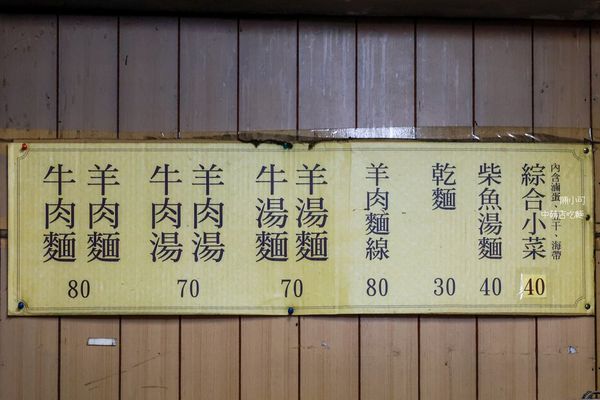 綜合小菜
內含滷蛋、干、海帶
40
柴魚湯麵
40
乾麵
30
羊肉麵線
80
羊湯麵
牛湯麵
70
羊肉湯
牛肉湯
70
羊肉麵
牛肉麵
80